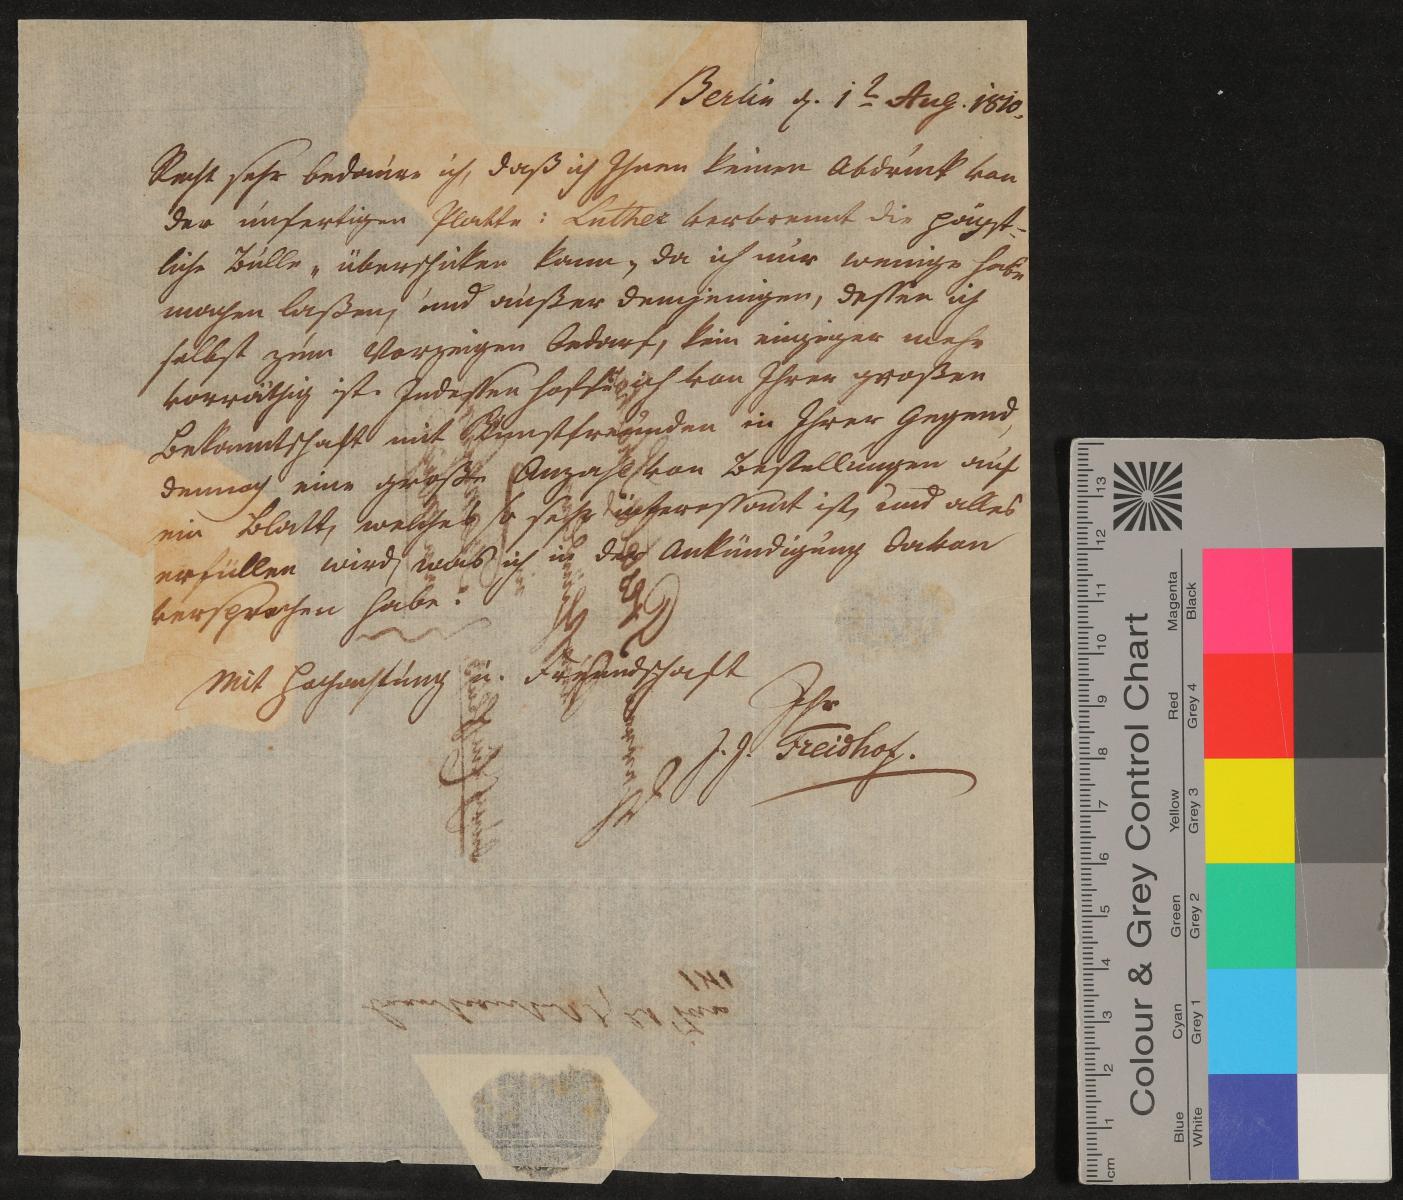 Berlin d. 12 Aug. 1810.
Recht sehr bedaure ich, daß ich Ihnen keinen Abdruck von
der unfertigen Platte: Luther verbrennt die päpst-
liche Bulle, überschicken kann, da ich nur wenige habe
machen laßen, und außer demjenigen, dessen ich
selbst zum Vorzeigen bedarf, kein einziger mehr
vorräthig ist. Indessen hoffe ich von Ihrer großen
Bekanntschaft mit Kunstfreunden in Ihrer Gegend,
dennoch eine große Anzahl von Bestellungen auf
ein Blatt, welches so sehr interessant ist, und alles
erfüllen wird, was ich in der Ankündigung davon
versprochen habe.
Mit Hochachtung u. Freundschaft
Ihr
J. J. Freidhof.
Colour & Grey Control Chart
Blue Cyan Green Yellow Red Magenta
White Grey 1 Grey 2 Grey 3 Grey 4 Black
cm 1 2 3 4 5 6 7 8 9 10 11 12 13